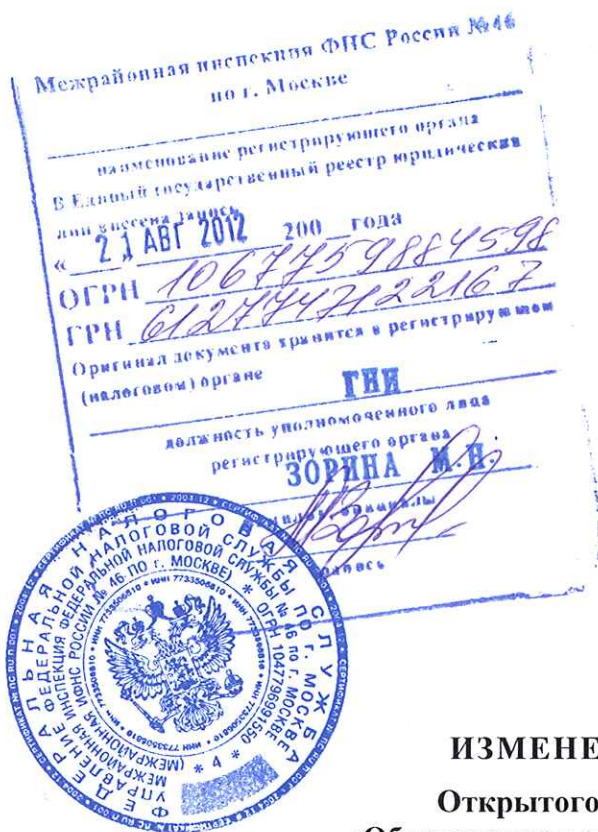 Межрайонная инспекция ФНС России №46
по г. Москве
наименование регистрирующего органа
В Единый государственный реестр юридических
лиц внесена запись
« 21 АВГ 2012 200 года
ОГРН 1067759884598
ГРН 6127747122167
Оригинал документа хранится в регистрирующем
(налоговом) органе
ГНИ
должность уполномоченного лица
регистрирующего органа
ЗОРИНА М.Н.
инициалы
подпись
ФЕДЕРАЛЬНАЯ НАЛОГОВАЯ СЛУЖБА
УПРАВЛЕНИЕ ФЕДЕРАЛЬНОЙ НАЛОГОВОЙ СЛУЖБЫ ПО Г. МОСКВЕ
МЕЖРАЙОННАЯ ИНСПЕКЦИЯ ФЕДЕРАЛЬНОЙ НАЛОГОВОЙ СЛУЖБЫ № 46 по г. МОСКВЕ
(МЕЖРАЙОННАЯ ИФНС РОССИИ № 46 ПО г. МОСКВЕ) * ОГРН 1047796991550
* ИНН 7733506810 * ИНН 7733506810
* 4 *
ИЗМЕНЕ
Открытого